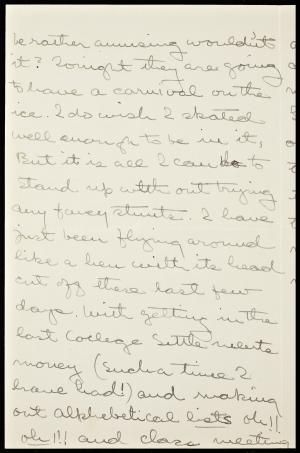 be rather amusing wouldn't
it? Tonight they are going
to have a carnival on the
ice. I do wish I skated
well enough to be in it,
But it is all I can do to
stand up with out trying
any fancy stunts. I have
just been flying around
like a hen with its head
cut off these last few
days. With getting in the
last College Settlements
money (such a time I
have had!) and making
out alphabetical lists oh!!
oh!!! and class meeting